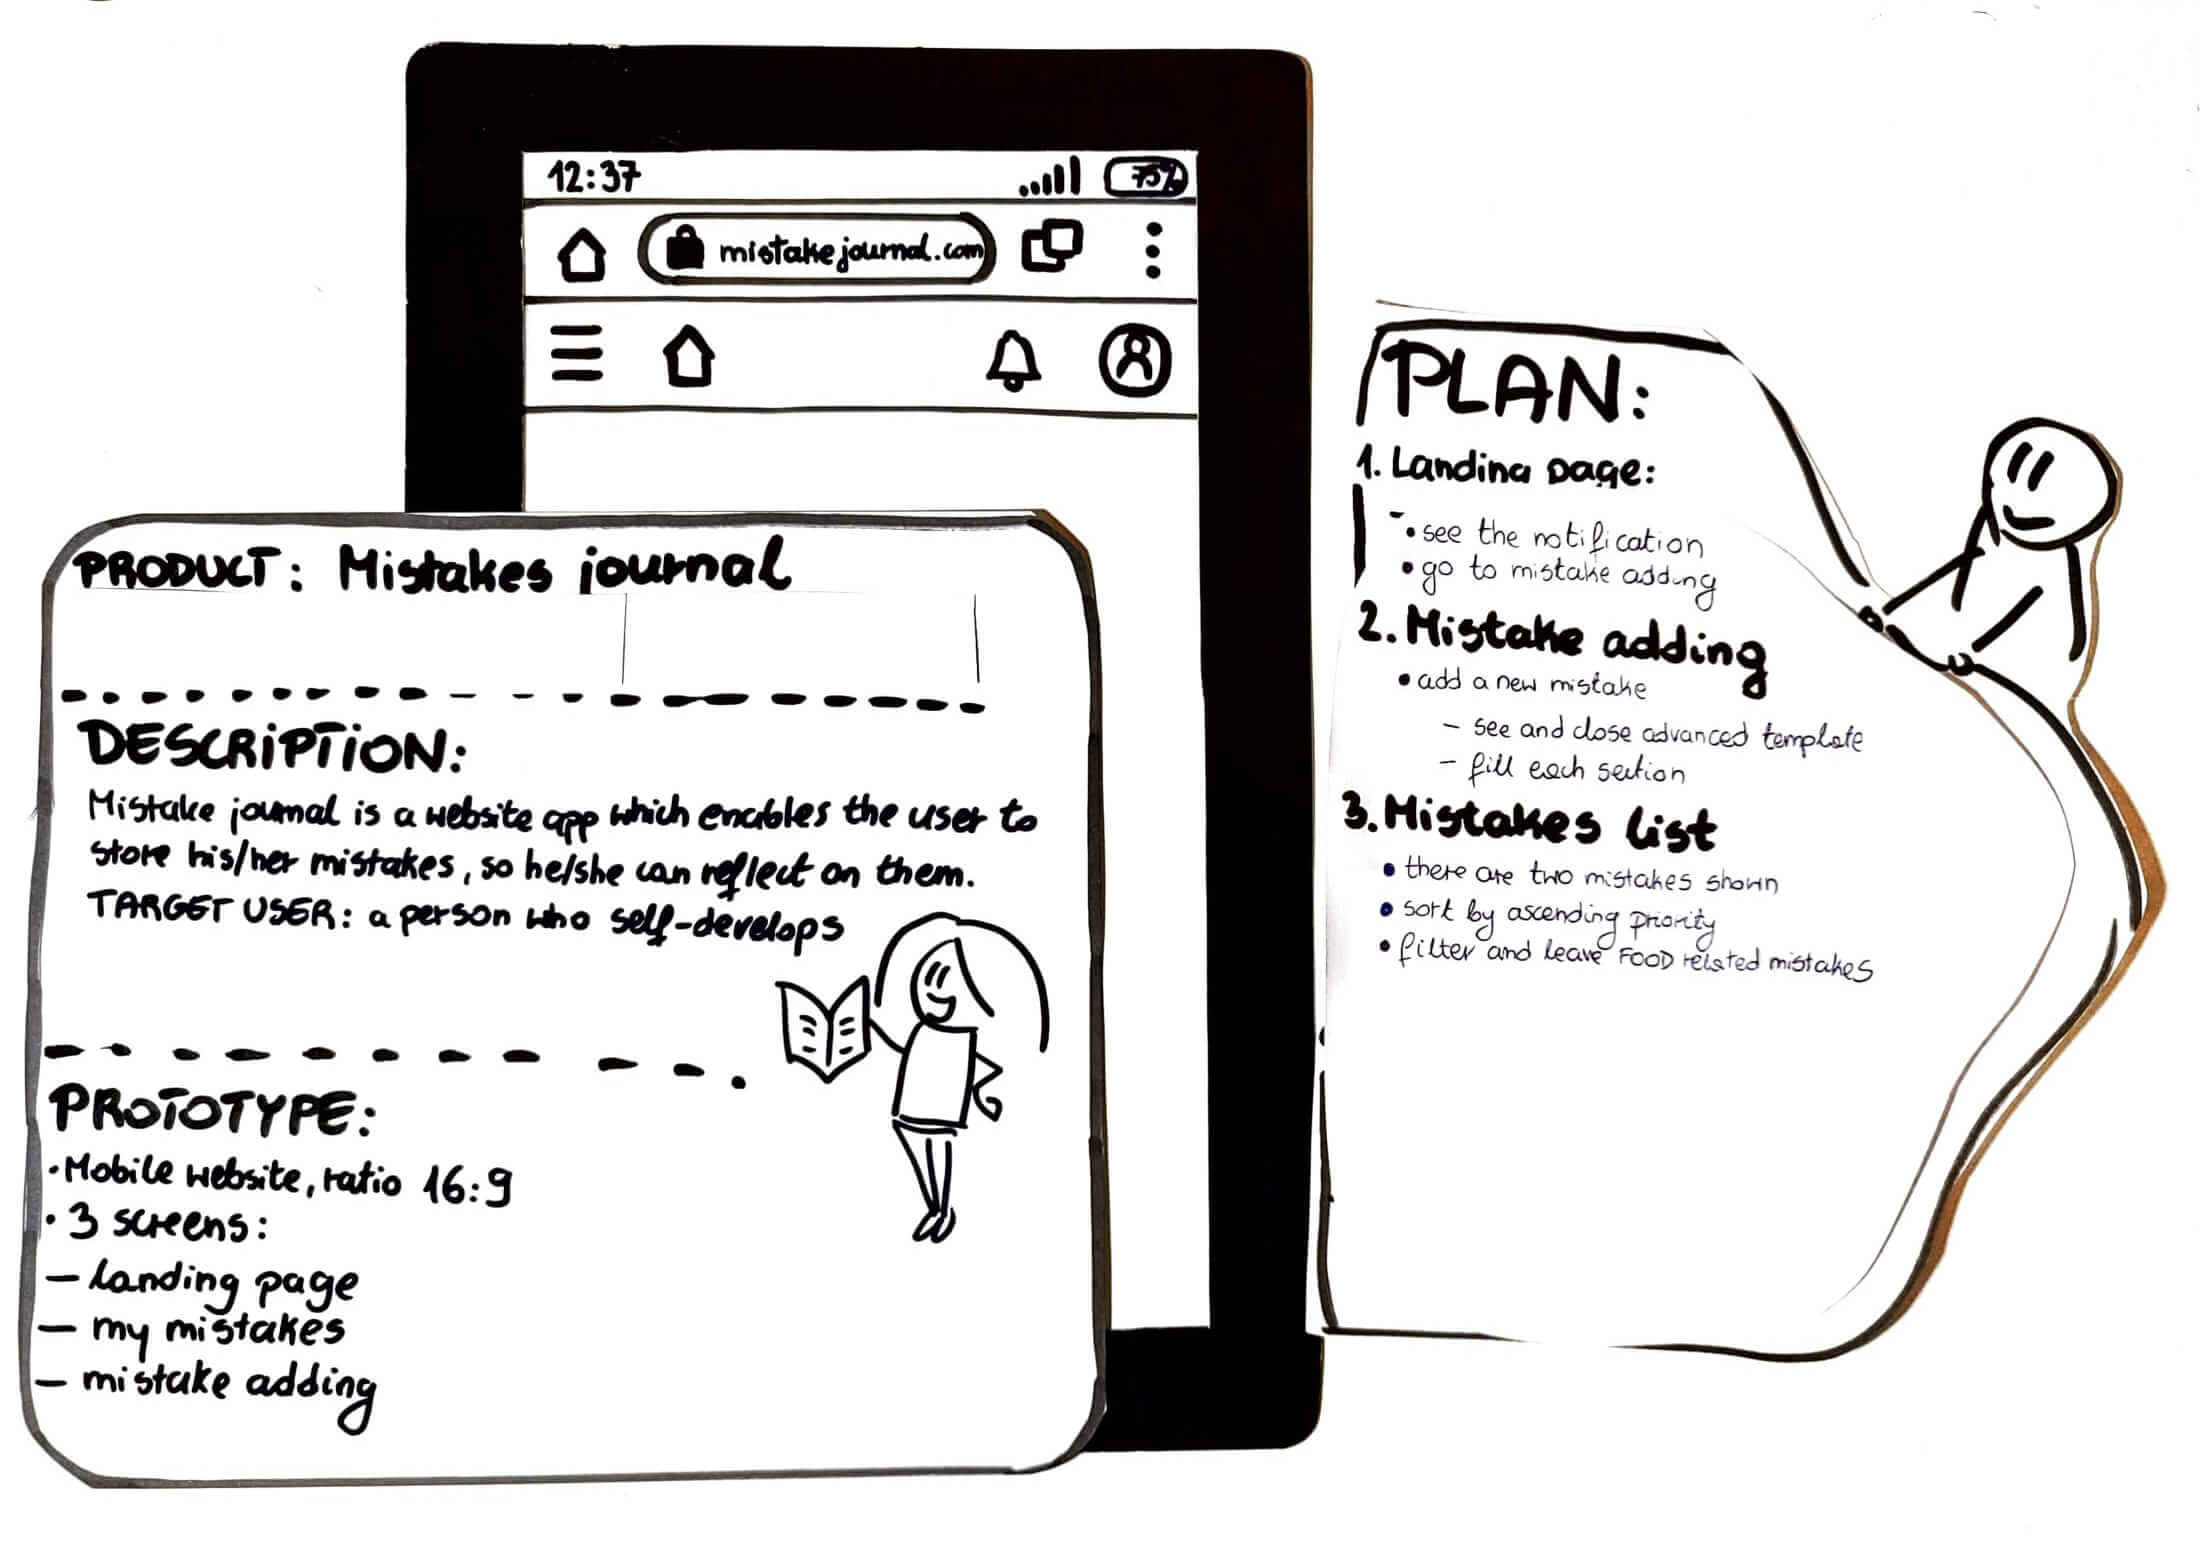 12:37
75%
mistakejournal.com
PRODUCT: Mistakes journal
DESCRIPTION:
Mistake journal is a website app which enables the user to
store his/her mistakes, so he/she can reflect on them.
TARGET USER: a person who self-develops
PROTOTYPE:
• Mobile website, ratio 16:9
• 3 screens:
— landing page
— my mistakes
— mistake adding
PLAN:
1. Landing page:
• see the notification
• go to mistake adding
2. Mistake adding
• add a new mistake
— see and close advanced template
— fill each section
3. Mistakes list
• there are two mistakes shown
• sort by ascending priority
• filter and leave FOOD related mistakes